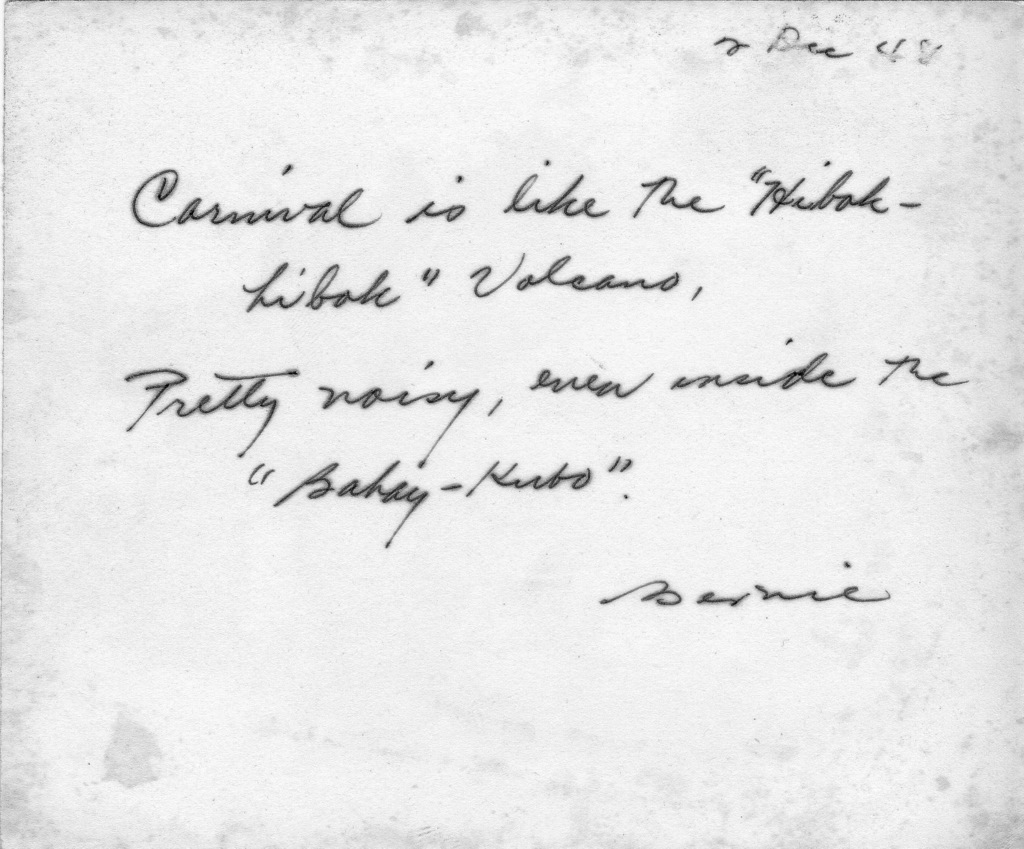 2 Dec 48
Carnival is like the "Hibok-
hibok" Volcano,
Pretty noisy, even inside the
"Bahay-Kubo".
Bernie